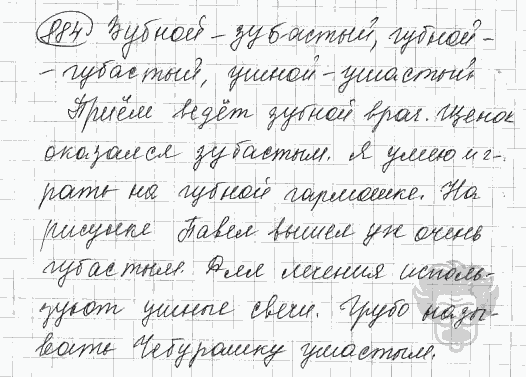 884) Зубной - зубастый, губной -
- губастый, ушной - ушастый.
Приём ведёт зубной врач. Щенок
оказался зубастым. Я умею иг-
рать на губной гармошке. На
рисунке Павел вышел уж очень
губастым. Для лечения исполь-
зуют ушные свечи. Грубо назы-
вать Чебурашку ушастым.